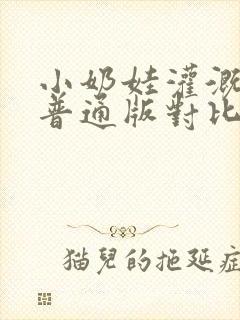 小奶娃灌溉
普通版對比
猫兒的拖延症